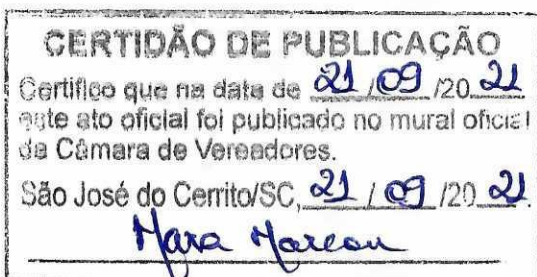 CERTIDÃO DE PUBLICAÇÃO
Certifico que na data de 21/09/2021
este ato oficial foi publicado no mural oficial
da Câmara de Vereadores.
São José do Cerrito/SC, 21/09/2021.
Mara